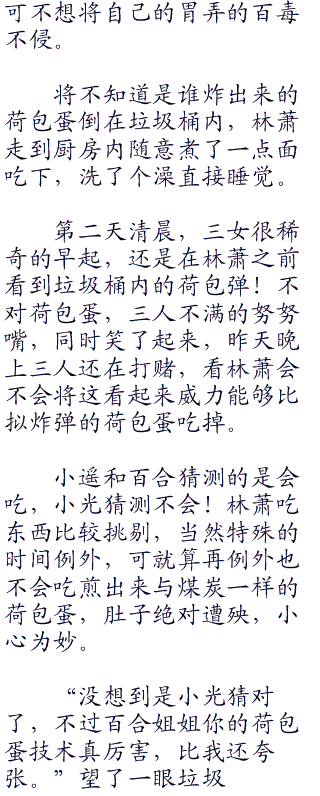 可不想将自己的胃弄的百毒
不侵。
将不知道是谁炸出来的
荷包蛋倒在垃圾桶内，林萧
走到厨房内随意煮了一点面
吃下，洗了个澡直接睡觉。
第二天清晨，三女很稀
奇的早起，还是在林萧之前
看到垃圾桶内的荷包弹！不
对荷包蛋，三人不满的努努
嘴，同时笑了起来，昨天晚
上三人还在打赌，看林萧会
不会将这看起来威力能够比
拟炸弹的荷包蛋吃掉。
小遥和百合猜测的是会
吃，小光猜测不会！林萧吃
东西比较挑剔，当然特殊的
时间例外，可就算再例外也
不会吃煎出来与煤炭一样的
荷包蛋，肚子绝对遭殃，小
心为妙。
“没想到是小光猜对
了，不过百合姐姐你的荷包
蛋技术真厉害，比我还夸
张。”望了一眼垃圾